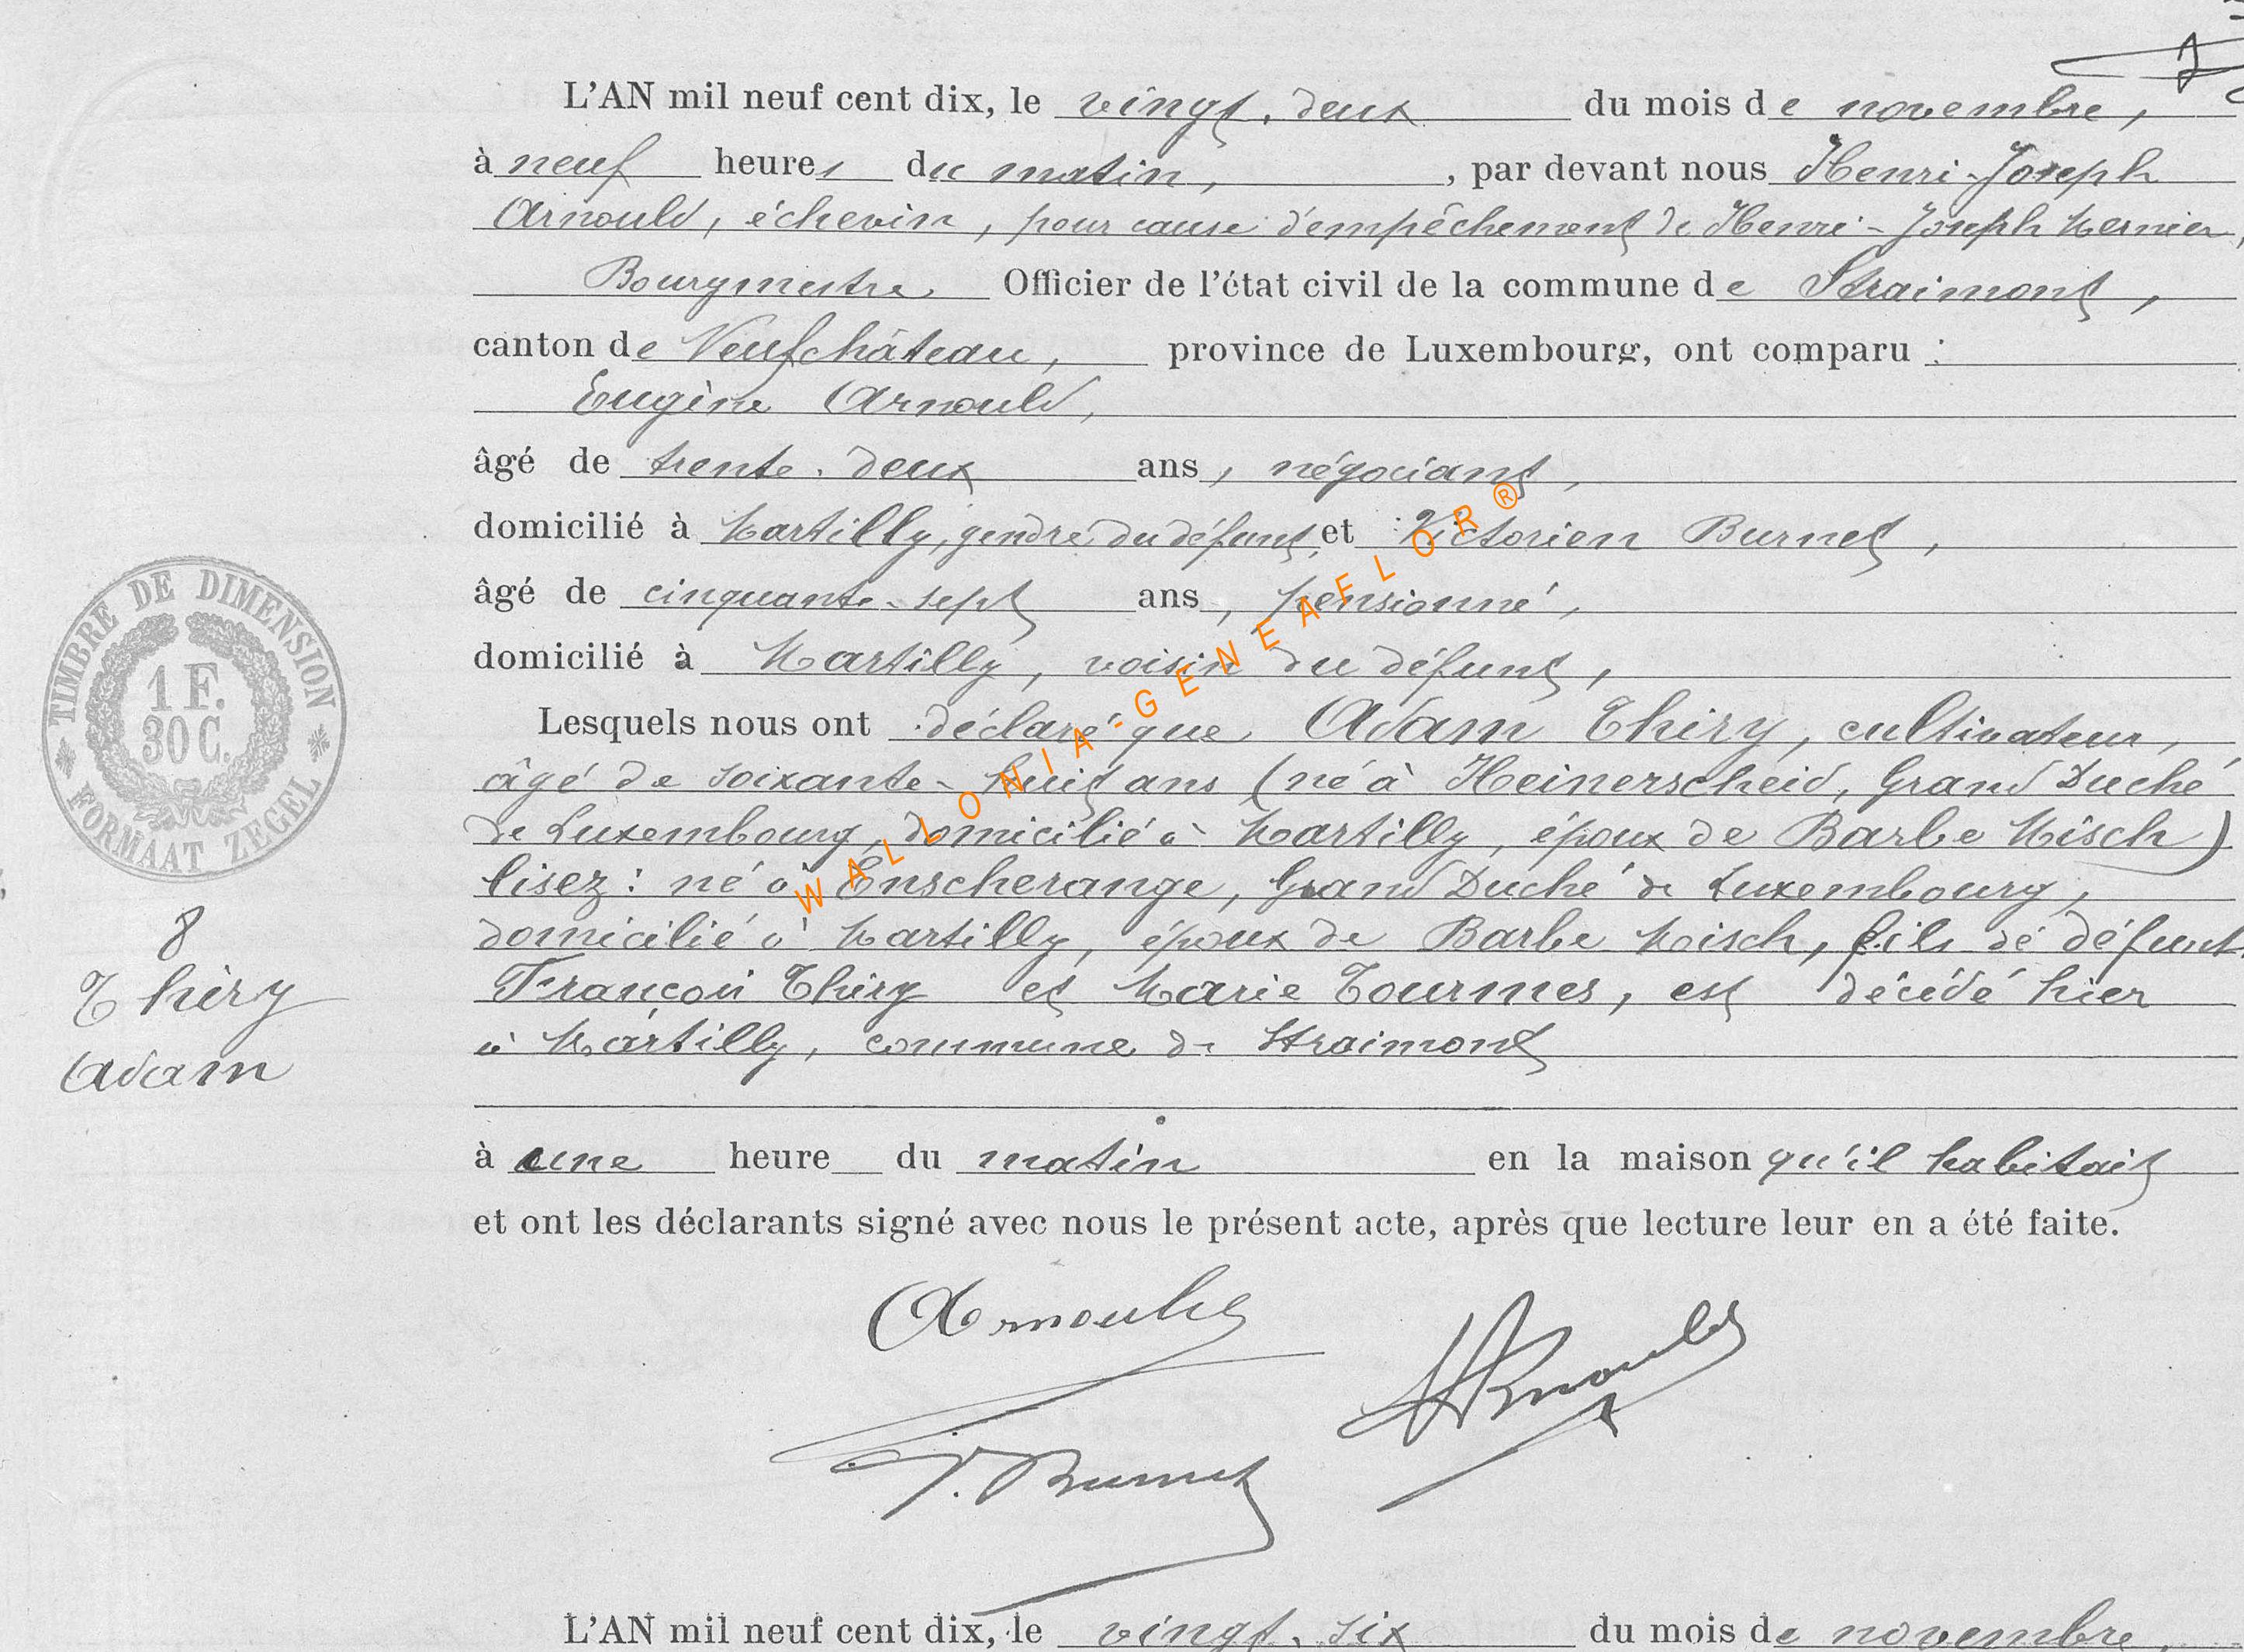 L'AN mil neuf cent dix, le vingt-deux du mois de novembre,
à neuf heures du matin, , par devant nous Henri-Joseph
Arnould, échevin, pour cause d'empêchement de Henri-Joseph Mernier,
Bourgmestre Officier de l'état civil de la commune de Straimont,
canton de Neufchâteau, province de Luxembourg, ont comparu :
Eugène Arnould,
âgé de trente-deux ans, négociant,
domicilié à Martilly, gendre du défunt, et Victorien Burnet,
âgé de cinquante-sept ans, pensionné,
domicilié à Martilly, voisin du défunt,
Lesquels nous ont déclaré que Adam Thiry, cultivateur,
âgé de soixante-huit ans (né à Heinerscheid, Grand Duché
de Luxembourg, domicilié à Martilly, époux de Barbe Misch)
lisez : né à Enscherange, Grand Duché de Luxembourg,
domicilié à Martilly, époux de Barbe Misch, fils de défunts
François Thiry et Marie Tourmes, est décédé hier
à Martilly, commune de Straimont
à une heure du matin en la maison qu'il habitait
et ont les déclarants signé avec nous le présent acte, après que lecture leur en a été faite.
TIMBRE DE DIMENSION
1 F.
30 C.
FORMAAT ZEGEL
8
Thiry
Adam
WALLONIA-GENEAFLOR®
Arnould
HArnould
V. Burnet
L'AN mil neuf cent dix, le vingt-six du mois de novembre,